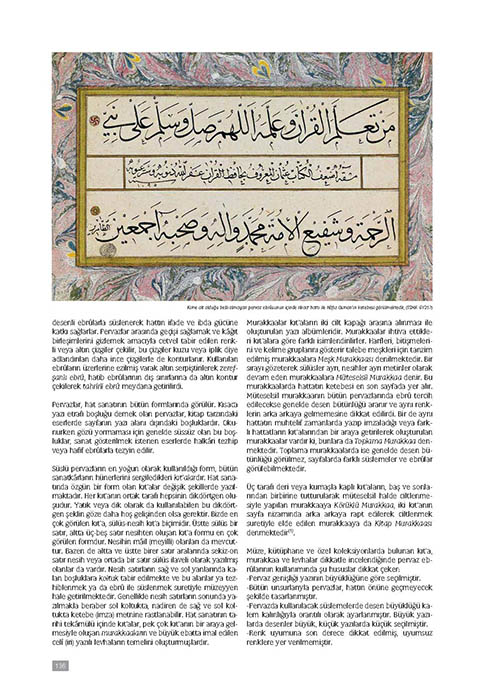 من تعلم القرآن وعلمه اللهم صل وسلم على نبي
مشقه اضعف الكتاب عثمان المعروف بحافظ القرآن غفر الله ذنوبه وستر عيوبه
الرحمة وشفيع الامة محمد واله وصحبه اجمعين
Kime ait olduğu belli olmayan pervaz ebrûsunun içinde hattı ile Hâfız Osman'ın ketebesi görülmektedir.
desenli ebrûlarla süslenerek hattın ifade ve ibda gücüne
katkı sağlarlar. Pervazlar arasında geçişi sağlamak ve kâğıt
birleşimlerini gizlemek amacıyla cetvel tabir edilen renk-
li veya altın çizgiler çekilir, bu çizgiler kuzu veya iplik diye
adlandırılan daha ince çizgilerle de konturlanır. Kullanılan
ebrûların üzerlerine ezilmiş varak altın serpiştirilerek zeref-
şanlı ebrû, hatib ebrûlarının dış sınırlarına da altın kontur
çekilerek tahrirli ebrû meydana getirilirdi.
Pervazlar, hat sanatının bütün formlarında görülür. Kısacа
yazı etrafı boşluğu demek olan pervazlar, kitap tarzındaki
eserlerde sayfanın yazı alanı dışındaki boşluklardır. Oku-
nurken gözü yormaması için genelde süssüz olan bu boş-
luklar, sanat gösterilmek istenen eserlerde halkâri tezhip
veya hafif ebrûlarla tezyin edilir.
Süslü pervazların en yoğun olarak kullanıldığı form, bütün
sanatkârların hünerlerini sergiledikleri kıt'alardır. Hat sana-
tında özgün bir form olan kıt'alar değişik şekillerde yazıl-
maktadır. Her kıt'anın ortak tarafı hepsinin dikdörtgen olu-
şudur. Yatık veya dik olarak da kullanılabilen bu dikdört-
gen şeklin göze daha hoş gelişinden olsa gerektir. Bizde en
çok görülen kıt'a, sülüs-nesih kıt'a biçimidir. Üstte sülüs bir
satır, altta üç-beş satır nesihten oluşan kıt'a formu en çok
görülen formdur. Nesihin mâili (meyilli) olanları da mevcut-
tur. Bazen de altta ve üstte birer satır aralarında sekiz-on
satır nesih veya ortada bir satır sülüs ilaveli olarak yazılmış
olanlar da vardır. Nesih satırların sağ ve sol yanlarında ka-
lan boşluklara koltuk tabir edilmekte ve bu alanlar ya tez-
hiblenmek ya da ebrû ile süslenmek suretiyle müzeyyen
hale getirilmektedir. Genellikle nesih satırların sonunda ya-
zılmakla beraber sol koltukta, nadiren de sağ ve sol kol-
tukta ketebe (imza) metnine rastlanabilir. Hat sanatının ta-
rihi tekâmülü içinde kıt'alar, pek çok kıt'anın bir araya gel-
mesiyle oluşan murakkaaların ve büyük ebatta imal edilen
celî (iri) yazılı levhaların temelini oluşturmuşlardır.
Murakkaalar kıt'aların iki cilt kapağı arasına alınması ile
oluşturulan yazı albümleridir. Murakkaalar ihtiva ettikle-
ri kıt'alara göre farklı isimlendirilirler. Harfleri, bitişmeleri-
ni ve kelime gruplarını gösterir talebe meşkleri için tanzim
edilmiş murakkaalara Meşk Murakkaası denilmektedir. Bir
sırayı gözeterek sülüsler ayrı, nesihler ayrı metinler olarak
devam eden murakkaalara Müteselsil Murakkaa denir. Bu
murakkaalarda hattatın ketebesi en son sayfada yer alır.
Müteselsil murakkaaların bütün pervazlarında ebrû tercih
edilecekse genelde desen bütünlüğü aranır ve aynı renk-
lerin arka arkaya gelmemesine dikkat edilirdi. Bir de aynı
hattatın muhtelif zamanlarda yazıp imzaladığı veya fark-
lı hattatların kıt'alarından bir araya getirilerek oluşturulan
murakkaalar vardır ki, bunlara da Toplama Murakkaa den-
mektedir. Toplama murakkaalarda ise genelde desen bü-
tünlüğü görülmez, sayfalarda farklı süslemeler ve ebrûlar
görülebilmektedir.
Üç tarafı deri veya kumaşla kaplı kıt'aların, baş ve sonla-
rından birbirine tutturularak müteselsil halde ciltlenme-
siyle yapılan murakkaaya Körüklü Murakkaa, iki kıt'anın
sayfa nizamında arka arkaya rapt edilerek ciltlenmek
suretiyle elde edilen murakkaaya da Kitap Murakkaası
denmektedir
Müze, kütüphane ve özel koleksiyonlarda bulunan kıt'a,
murakkaa ve levhalar dikkatle incelendiğinde pervaz eb-
rûlarının kullanımında şu hususlar dikkat çeker:
-Pervaz genişliği yazının büyüklüğüne göre seçilmiştir.
-Bütün unsurlarıyla pervazlar, hattın önüne geçmeyecek
şekilde tasarlanmıştır.
-Pervazda kullanılacak süslemelerde desen büyüklüğü ka-
lem kalınlığıyla orantılı olarak ayarlanmıştır. Büyük yazı-
larda desenler büyük, küçük yazılarda küçük seçilmiştir.
-Renk uyumuna son derece dikkat edilmiş, uyumsuz
renklere yer verilmemiştir.
136